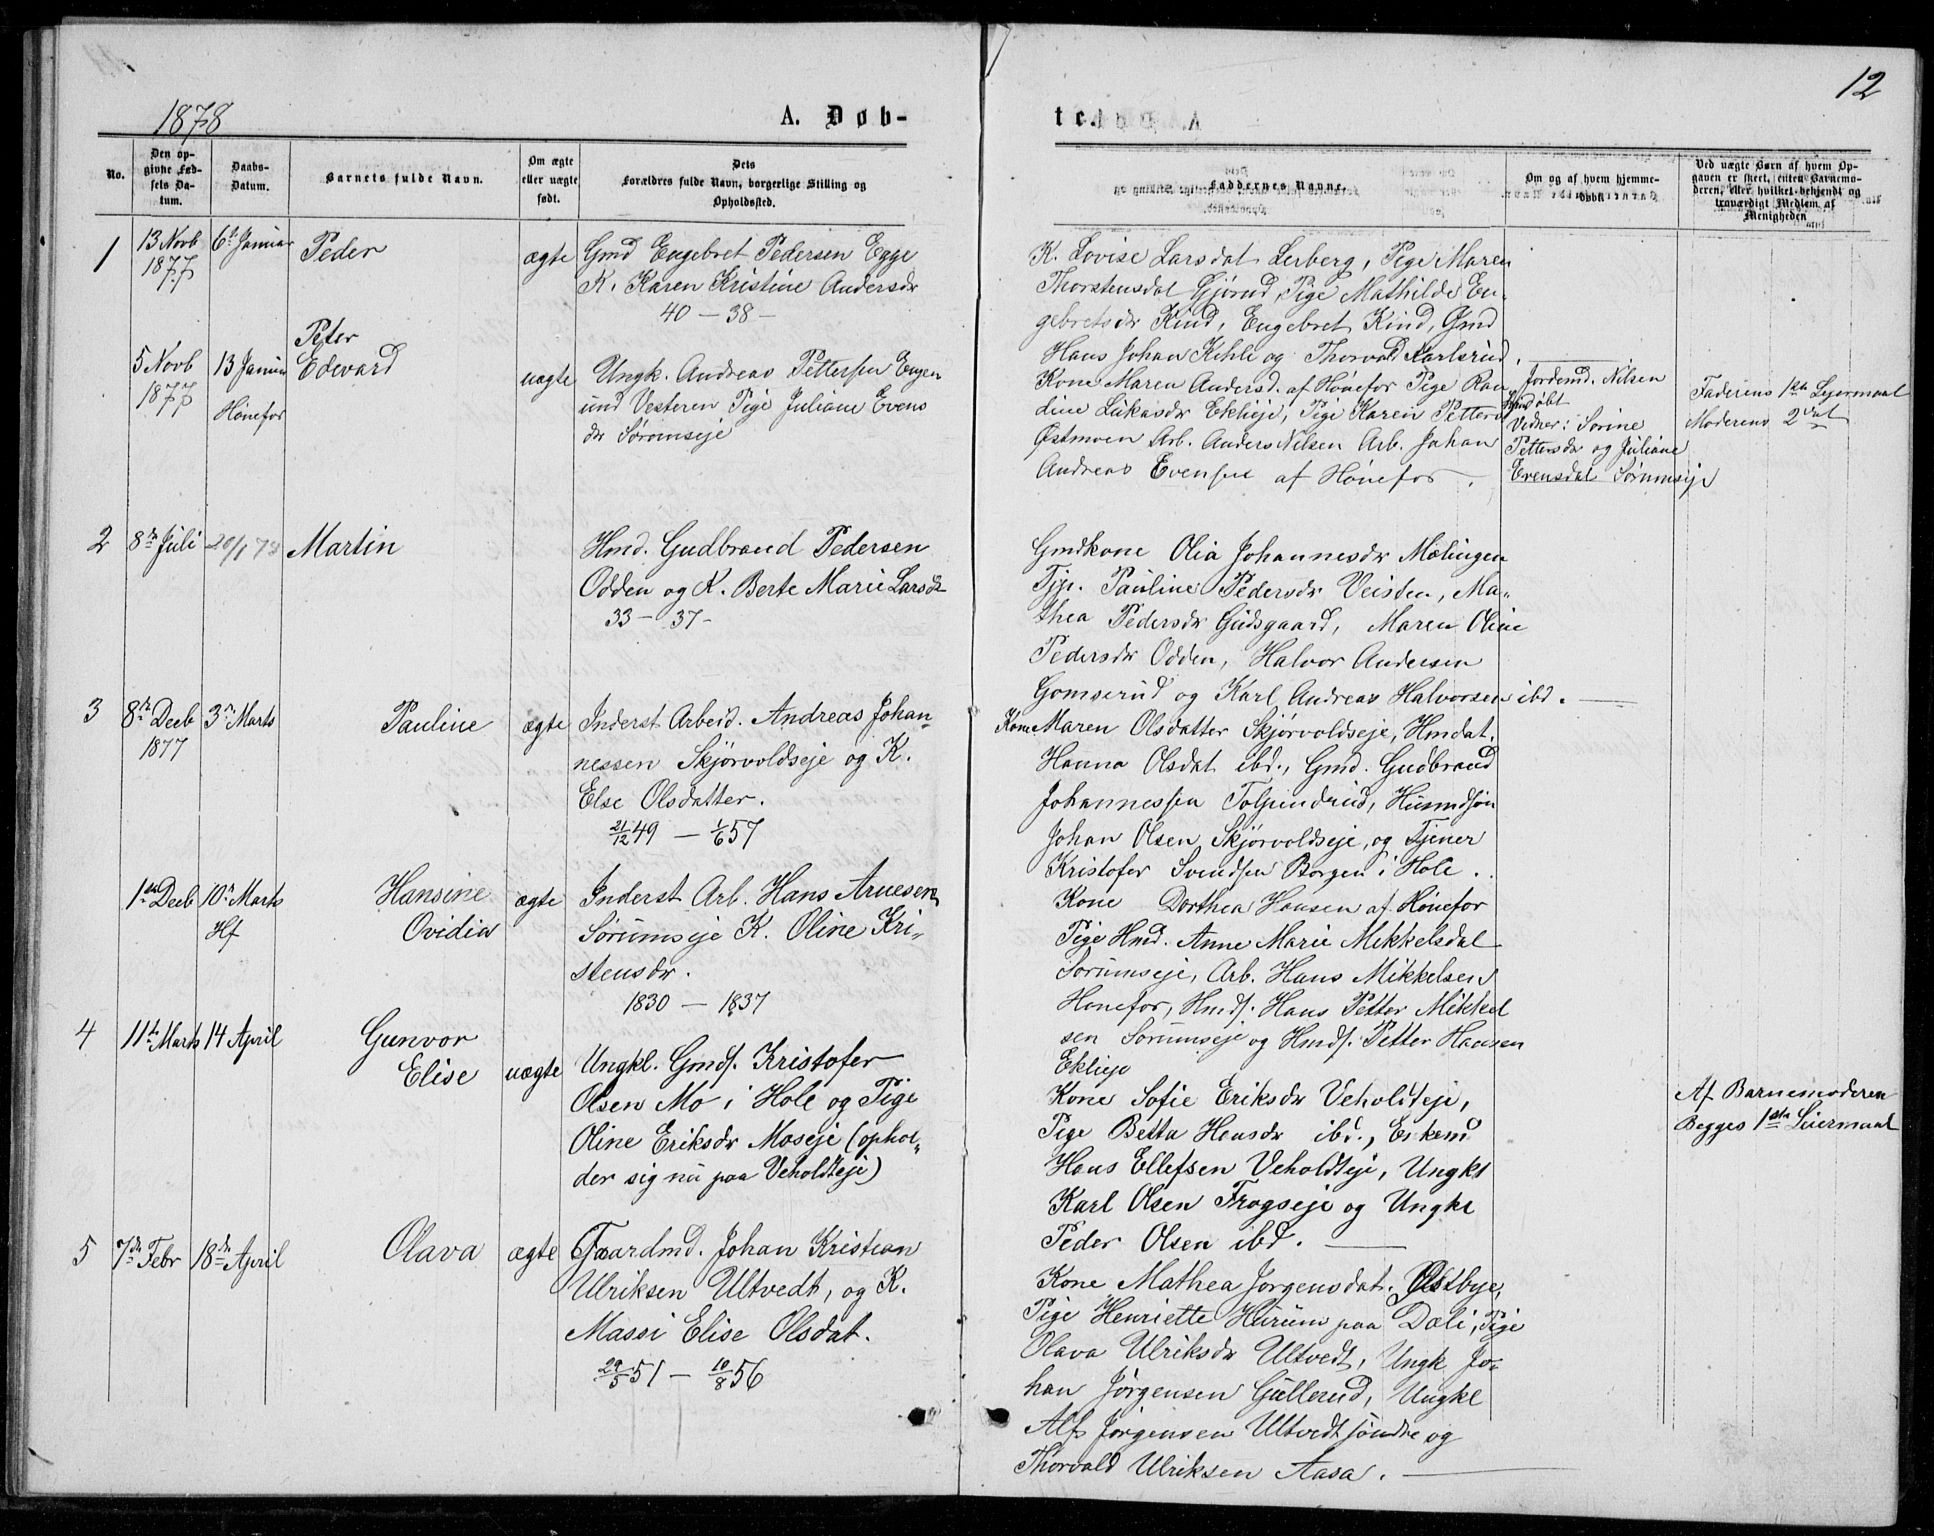 12
1878
A. Døb-
te.
No.
Den op-
givne Fød-
sels Da-
tum.
Daabs-
Datum.
Barnets fulde Navn.
Om ægte
eller uægte
født.
Dets
Forældres fulde Navn, borgerlige Stilling og
Opholdssted.
Faddernes Navne.
Om og af hvem hjemme-
døbt.
Ved uægte Børn af hvem Op-
gaven er skeet, enten Barnemo-
deren, eller hvilket bekjendt og
troværdigt Medlem af
Menigheden
1
13 Novb
1877
6te Januar
Peder
ægte
Gmd Engebret Pedersen Egge
K. Karen Kristine Andersdr
40 — 38 —
K. Lovise Larsdat Lerberg, Pige Maren
Thorstensdat Gjørud, Pige Mathilde En-
gebretsdr Kind, Engebret Kind, Gmd
Hans Johan Kihle og Thorvald Karlsrud.
5 Novb
1877
13 Januar
Hønefos
Peter
Edevard
uægte
Ungk. Andreas Pettersen Engen
und Vesteren Pige Juliane Evens
dr Sørumseje
Kone Maren Andersd. af Hønefos Pige Ran
dine Lukasdr Eklieje, Pige Karen Petters
Østmoen Arb. Anders Nilsen Arb. Johan
Andreas Evensen af Hønefos.
Jordemd. Nilsen
Hmdøbt
Vidner: Sorine
Pettersdr og Juliane
Evensdat Sørumseje
Faderens 1ste Lejermaal
Moderens 2det
2
8de Juli
20/1 78
Martin
Hmd. Gudbrand Pedersen
Odden og K. Berte Marie Larsdr
33 — 37 —
Gmdkone Olia Johannesdr Mælingen
Tjp. Pauline Pedersdr Veisten, Ma-
thea Pedersdr Gudsgaard, Maren Oline
Pedersdr Odden, Halvor Andersen
Gomserud og Karl Andreas Halvorsen ibd.
3
8de Decb
1877
3die Marts
Pauline
ægte
Inderst Arbeid. Andreas Johan-
nessen Skjørvoldseje og K.
Else Olsdatter.
21/12 49 — 1/6 57
Kone Maren Olsdatter Skjørvoldseje, Hmdat.
Hanna Olsdat ibd., Gmd. Gudbrand
Johannessen Tolpindrud, Husmdsøn
Johan Olsen Skjørvoldseje, og Tjener
Kristofer Svendsen Borgen i Hole.
1ste Decb
10de Marts
Hf
Hansine
Ovidia
ægte
Inderst Arb. Hans Arnesen
Sørumseje K. Oline Kri-
stensdr.
1830 — 1837
Kone Dorthea Hansen af Hønefos
Pige Hmd. Anne Marie Mikkelsdat
Sørumseje, Arb. Hans Mikkelsen
Hønefos, Hmds. Hans Petter Mikkel
sen Sørumseje og Hmds. Petter Hansen
Eklieje
4
11te Marts
14 April
Gunvor
Elise
uægte
Ungkl. Gmds. Kristofer
Olsen Mo i Hole og Pige
Oline Eriksdr Moseje (ophol-
der sig nu paa Veholdteje)
Kone Sofie Eriksdr Veholdteje,
Pige Betta Hansdr ibd., Enkemd
Hans Ellefsen Veholdteje, Ungkl
Karl Olsen Frogseje og Ungkl
Peder Olsen ibd.
Af Barnemoderen
Begges 1ste Leiermaal
5
7de Febr
18de April
Olava
ægte
Gaardmd. Johan Kristian
Ulriksen Ultvedt, og K.
Massi Elise Olsdat.
29/5 51 — 10/8 56
Kone Mathea Jørgensdat. Østbye,
Pige Henriette Hurum paa Dæli, Pige
Olava Ulriksdr Ultvedt, Ungk Jo-
han Jørgensen Gullerud, Ungkl
Alf Jørgensen Ultvedt søndre og
Thorvald Ulriksen Aasa.